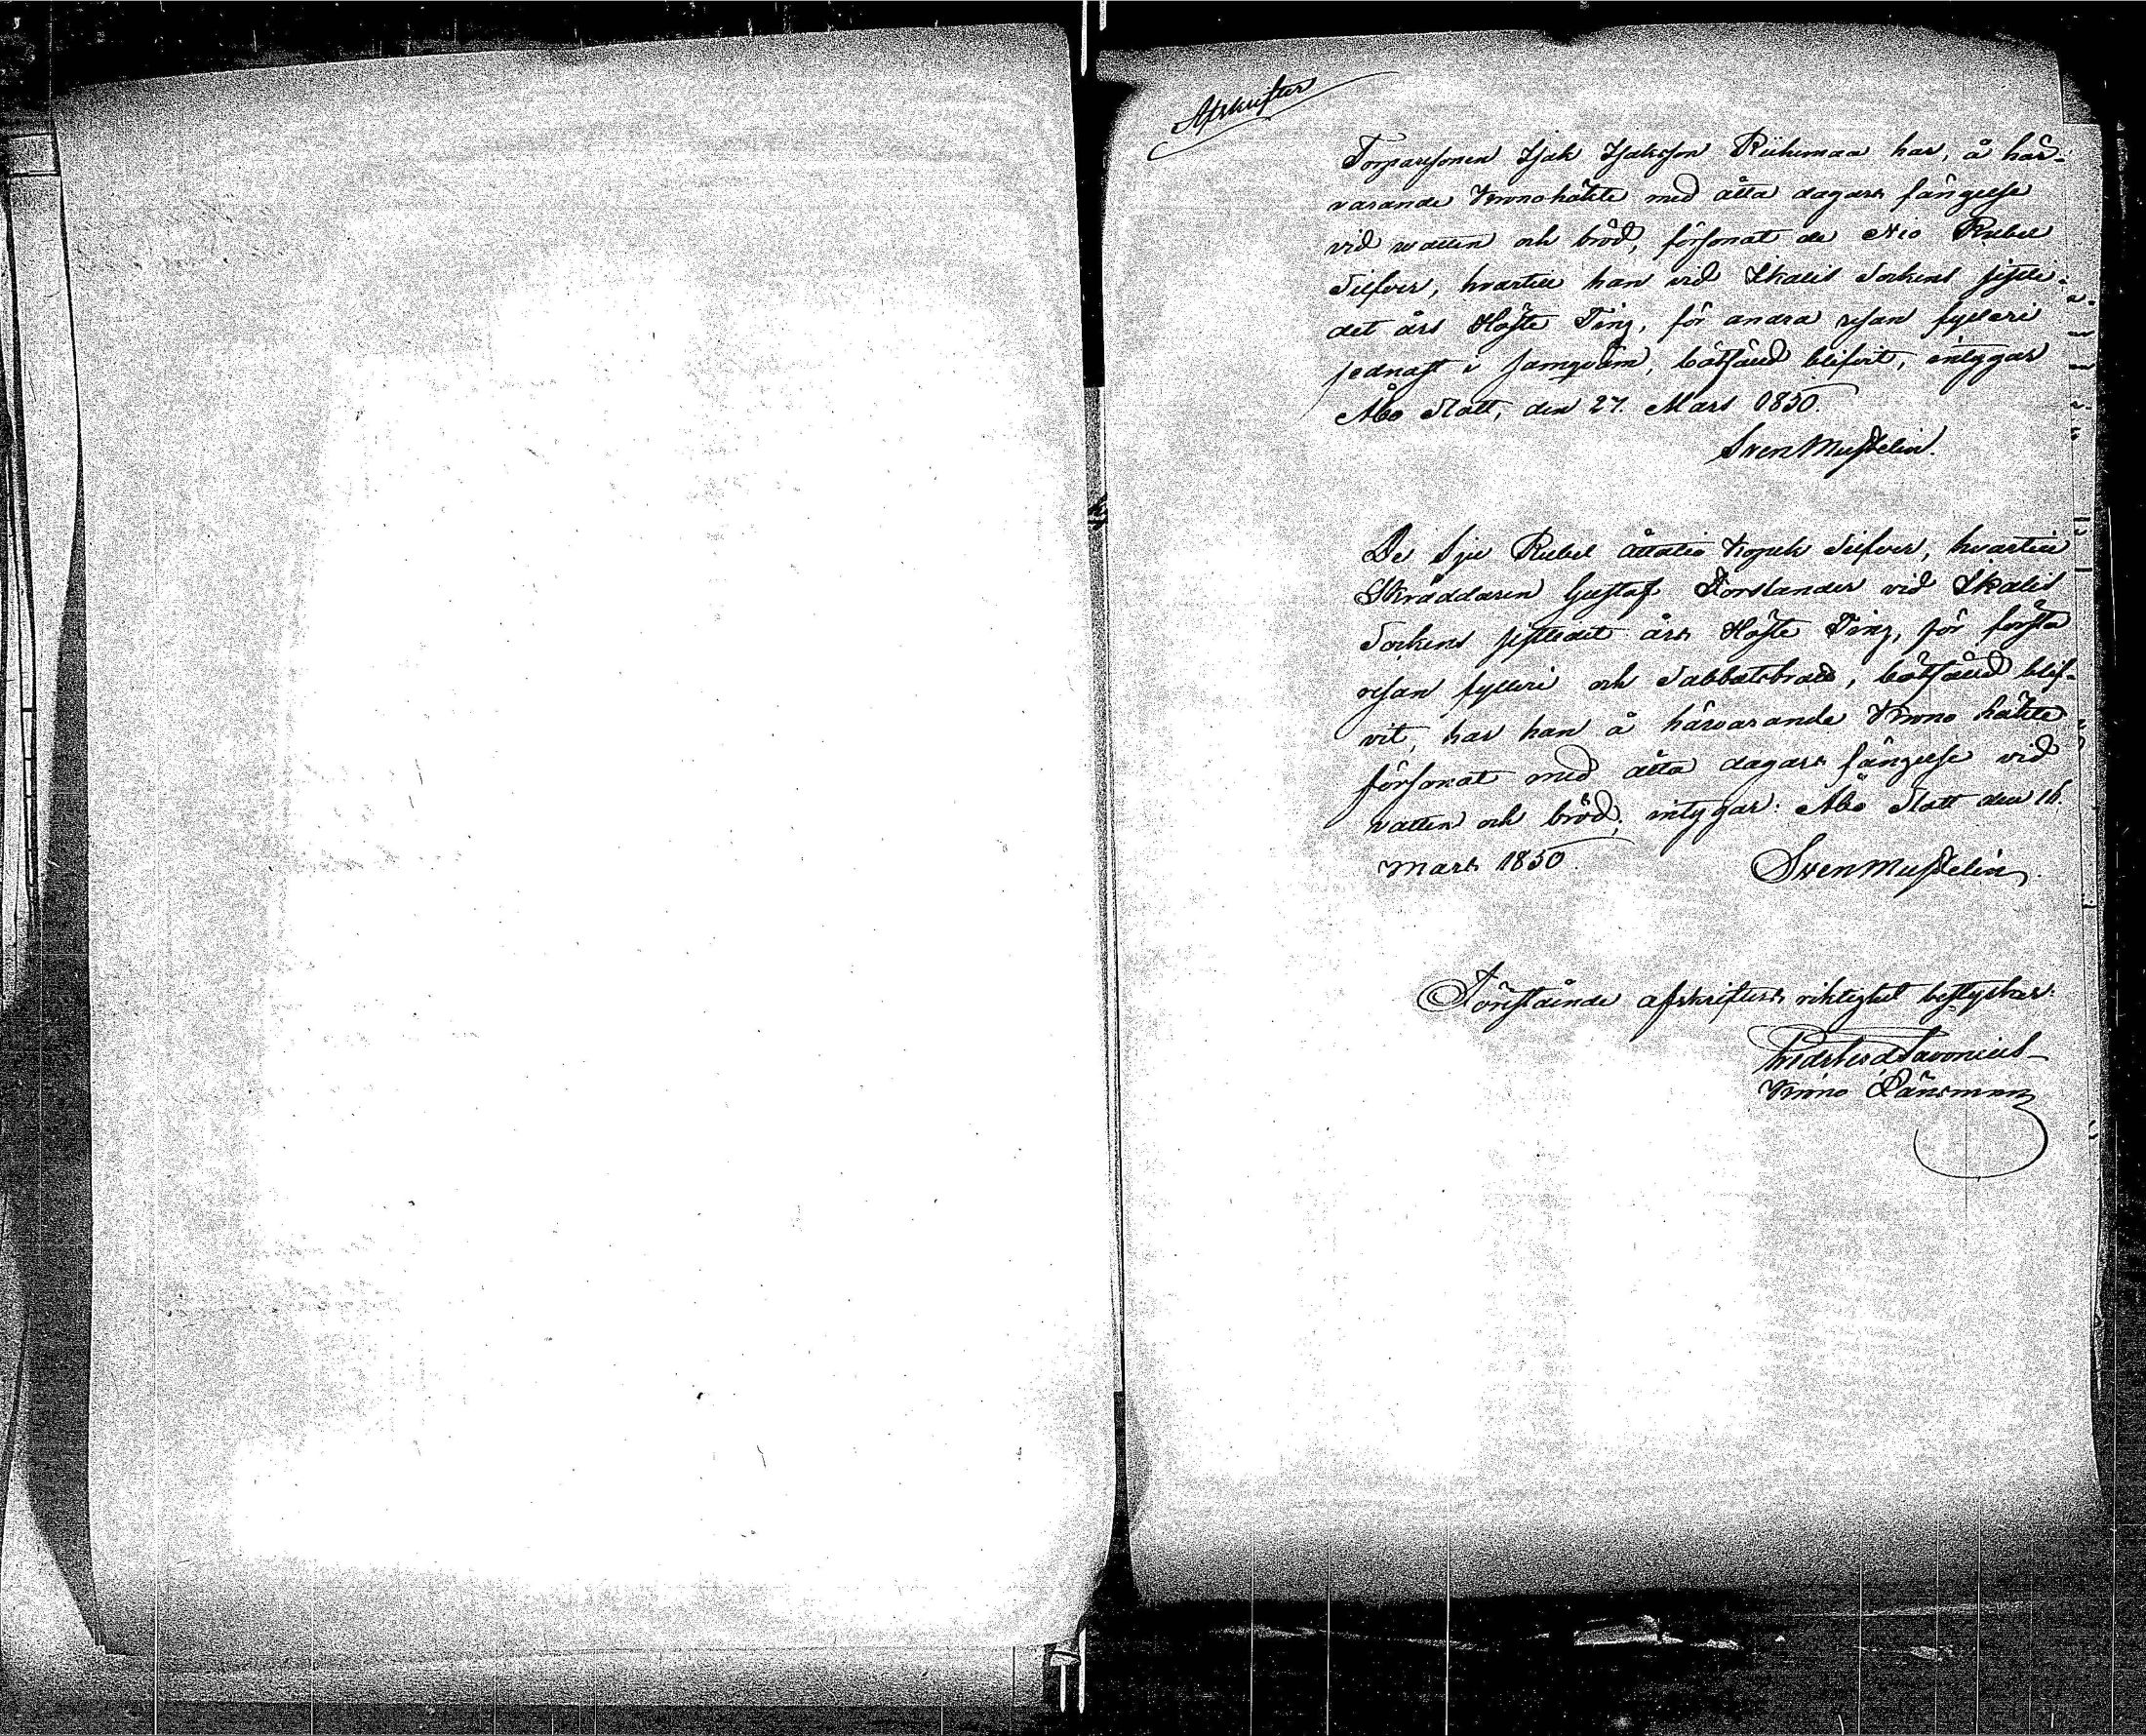 Afskrifter
Torparesonen Isak Isaksson Riihimaa har, å här-
varande Kronohäkte med åtta dagars fängelse
vid watten och bröd, försonat de Nio Rubel
Silfver, hvartill han vid Ikalis Sockens sistli-
det års Höste Ting, för andra resan fylleri
jednast i samqväm, bötfäld blifvit, intygar
Åbo Slott, den 27. Mars 1850.
Sven Mustelin.
De Sju Rubel Åttatio Kopek Silfver, hvartill
Skräddaren Gustaf Forslander vid Ikalis
Sockens sistledit års Höste Ting, för första
resan fylleri och Sabbatsbrott, bötfälld blif-
vit, har han å härvarande Krono häkte
försonat med åtta dagars fängelse vid
vatten och bröd; intygar: Åbo Slott den 16.
Mars 1850.
Sven Mustelin.
Förestående afskrifters riktighet bestyrker:
Savonius
Krono Länsman